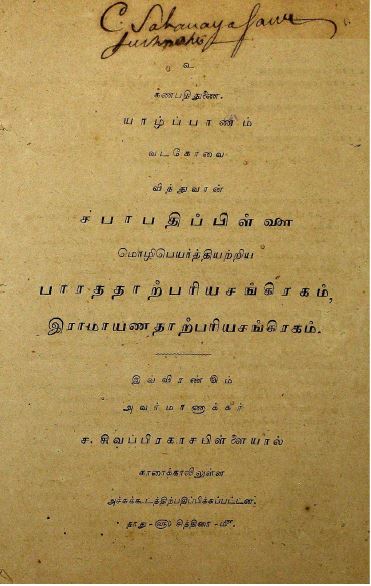 C. Sabanayagam
உ
கணபதிதுணை.
யாழ்ப்பாணம்
வடகோவை
வித்துவான்
சபாபதிப்பிள்ளை
மொழிபெயர்த்தியற்றிய
பாரததாற்பரியசங்கிரகம்,
இராமாயணதாற்பரியசங்கிரகம்.
இவ்விரண்டும்
அவர்மாணாக்கர்
ச. சிவப்பிரகாசபிள்ளையால்
காரைக்காலிலுள்ள
அச்சுக்கூடத்திற்பதிப்பிக்கப்பட்டன.
தாது-௵ சித்திரை-௴.